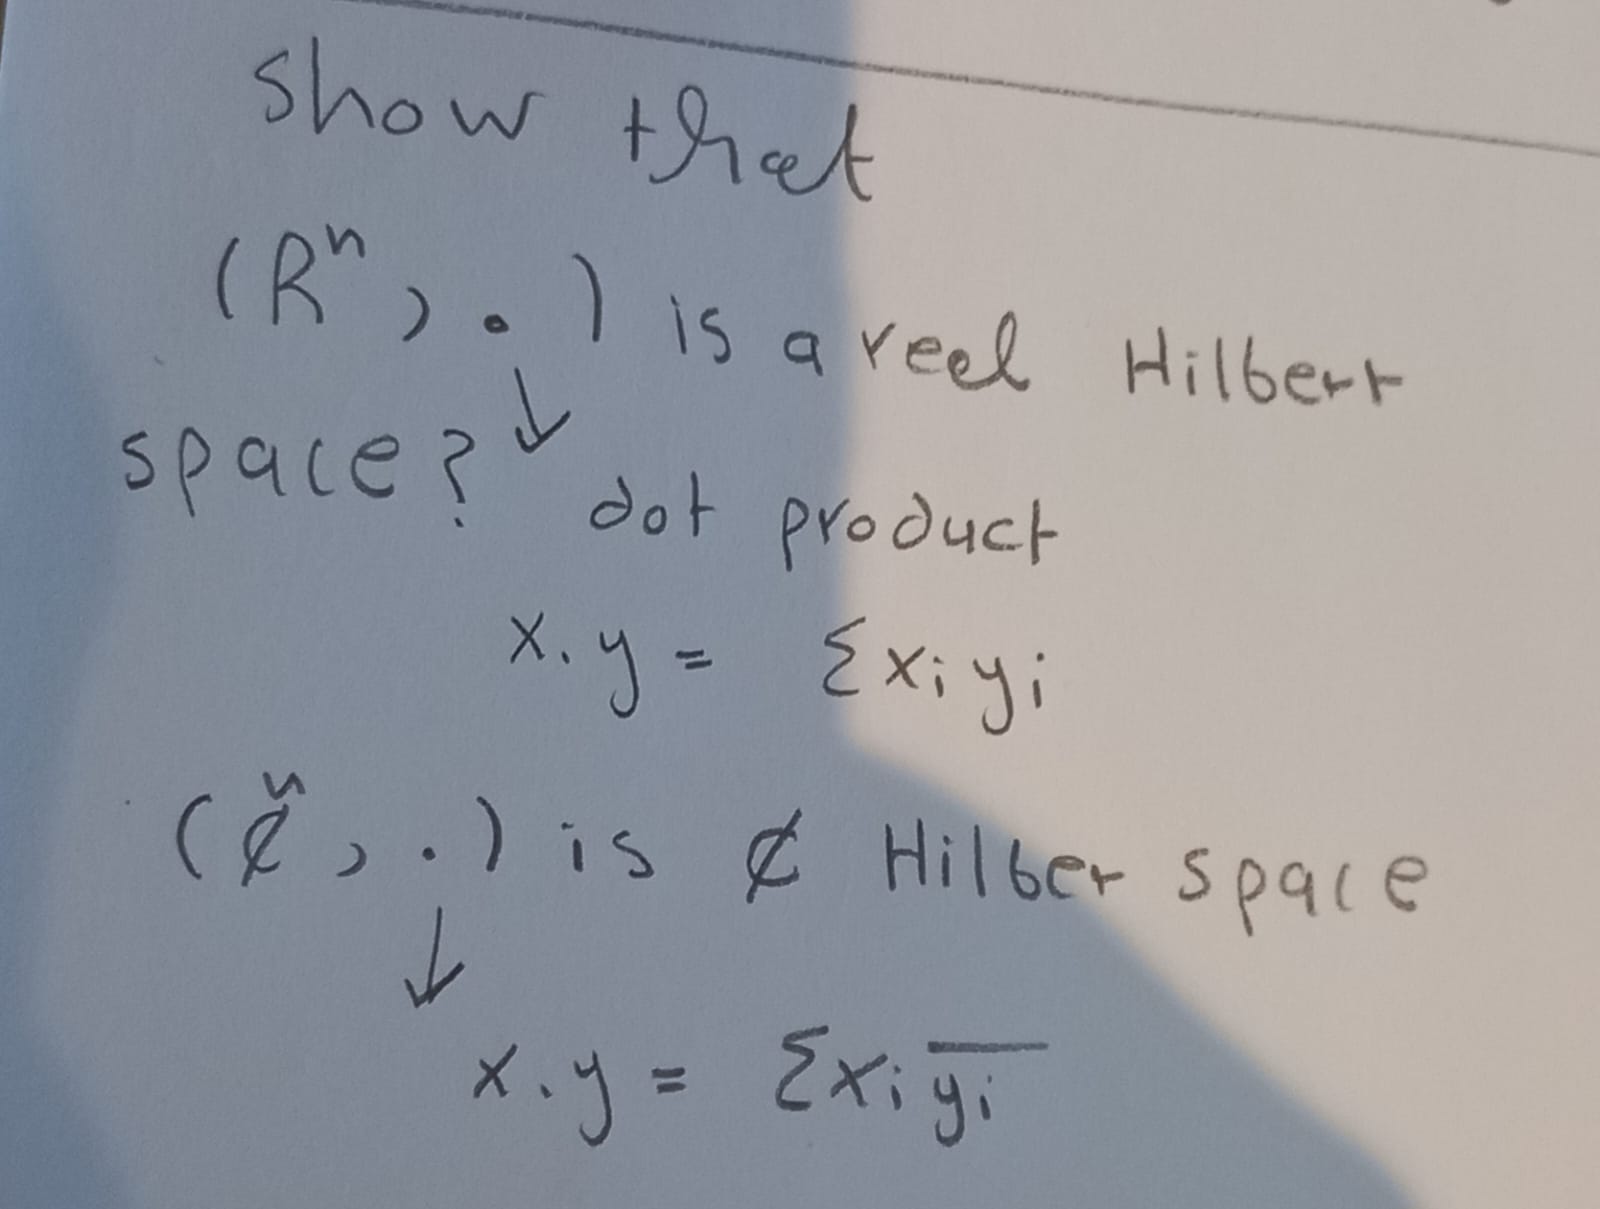 show that
(Rⁿ, .) is a reel Hilbert
space?
dot product
x.y = Σxᵢyᵢ
(ȼⁿ, .) is ȼ Hilber space
x.y = Σxᵢy̅ᵢ̅